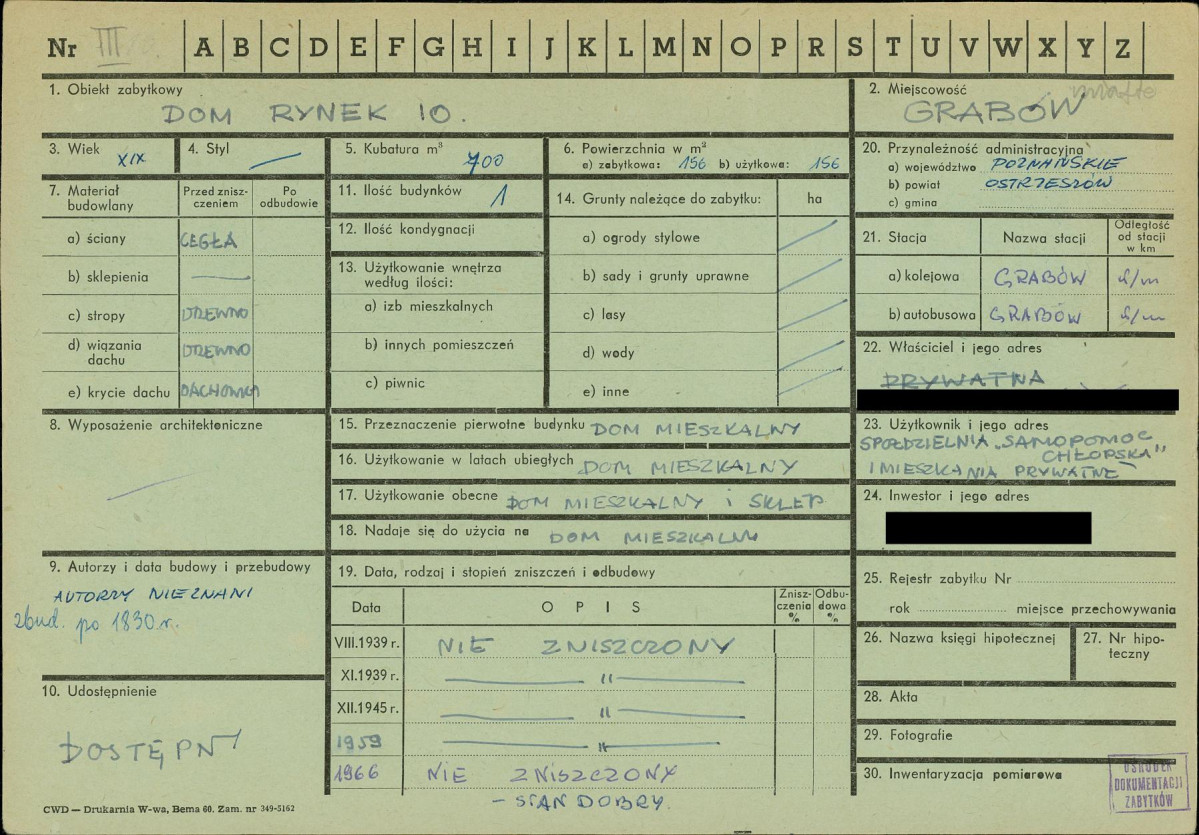 Nr III A B C D E F G H I J K L M N O P R S T U V W X Y Z
1. Obiekt zabytkowy
DOM RYNEK 10.
2. Miejscowość
miasto
GRABÓW
3. Wiek XIX
4. Styl —
5. Kubatura m³ 700
6. Powierzchnia w m²
a) zabytkowa: 156 b) użytkowa: 156
20. Przynależność administracyjna
a) województwo POZNAŃSKIE
b) powiat OSTRZESZÓW
c) gmina
7. Materiał budowlany
Przed znisz-
czeniem
Po
odbudowie
a) ściany CEGŁA
b) sklepienia —
c) stropy DREWNO
d) wiązania
dachu DREWNO
e) krycie dachu DACHÓWKA
11. Ilość budynków 1
12. Ilość kondygnacji
13. Użytkowanie wnętrza
według ilości:
a) izb mieszkalnych
b) innych pomieszczeń
c) piwnic
14. Grunty należące do zabytku: ha
a) ogrody stylowe
b) sady i grunty uprawne
c) lasy
d) wody
e) inne
21. Stacja Nazwa stacji
Odległość
od stacji
w km
a) kolejowa GRABÓW
b) autobusowa GRABÓW
22. Właściciel i jego adres
PRYWATNA
8. Wyposażenie architektoniczne
15. Przeznaczenie pierwotne budynku DOM MIESZKALNY
16. Użytkowanie w latach ubiegłych DOM MIESZKALNY
17. Użytkowanie obecne DOM MIESZKALNY i SKLEP
18. Nadaje się do użycia na DOM MIESZKALNY
23. Użytkownik i jego adres
SPÓŁDZIELNIA „SAMOPOMOC
CHŁOPSKA"
I MIESZKANIA PRYWATNE
24. Inwestor i jego adres
9. Autorzy i data budowy i przebudowy
AUTORZY NIEZNANI
zbud. po 1830 r.
10. Udostępnienie
DOSTĘPNY
19. Data, rodzaj i stopień zniszczeń i odbudowy
Data
O P I S
Znisz-
czenia
%
Odbu-
dowa
%
VIII.1939 r. NIE ZNISZCZONY
XI.1939 r. — " —
XII.1945 r. — " —
1959 — " —
1966 NIE ZNISZCZONY
– STAN DOBRY.
25. Rejestr zabytku Nr
rok miejsce przechowywania
26. Nazwa księgi hipotecznej
27. Nr hipo-
teczny
28. Akta
29. Fotografie
30. Inwentaryzacja pomiarowa
OŚRODEK
DOKUMENTACJI
ZABYTKÓW
CWD — Drukarnia W-wa, Bema 60. Zam. nr 349-5162